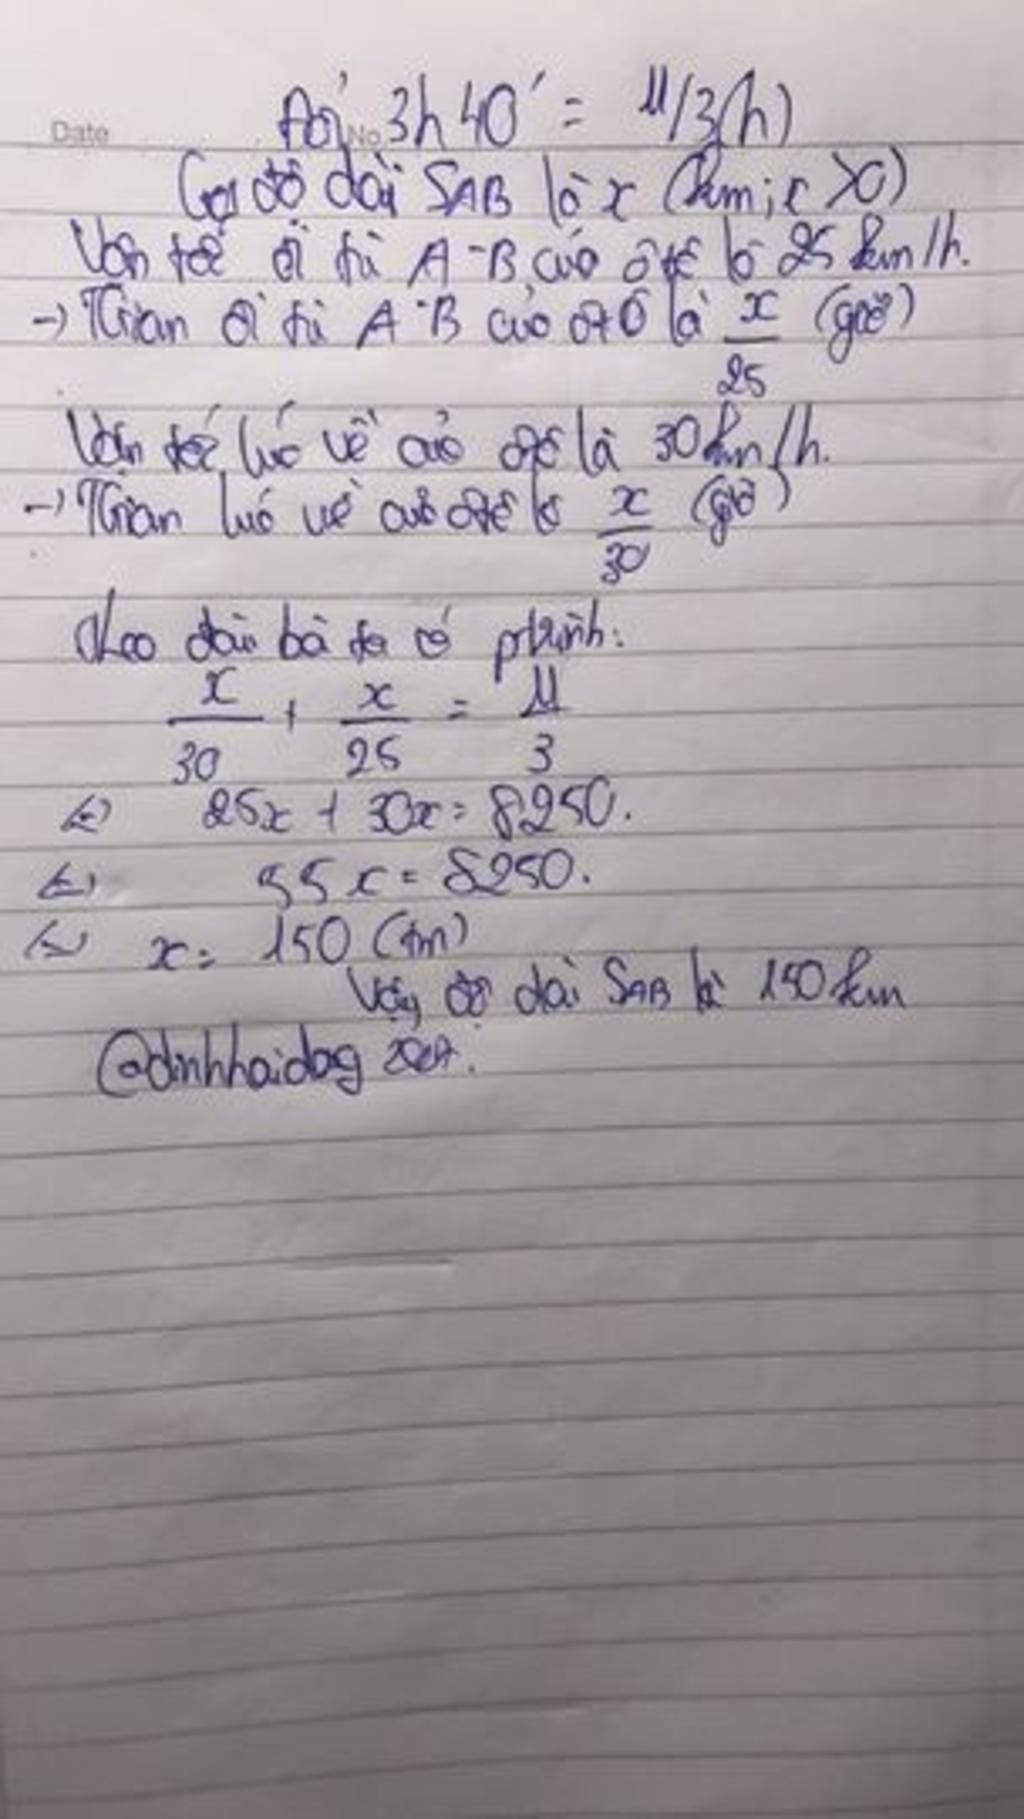 Date No
Đổi 3h40' = 11/3(h)
Gọi độ dài SAB là x (km; x >0)
Vận tốc đi từ A-B của ôtô là 25 km/h.
→ Tgian đi từ A-B của ôtô là x/25 (giờ)
Vận tốc lúc về của ôtô là 30km/h.
→ Tgian lúc về của ôtô là x/30 (giờ)
theo đầu bài ta có ptrình:
x/30 + x/25 = 11/3
<=> 25x + 30x = 8250.
<=> 55x = 8250.
<=> x = 150 (tm)
Vậy độ dài SAB là 150 km
@dinhhaidag